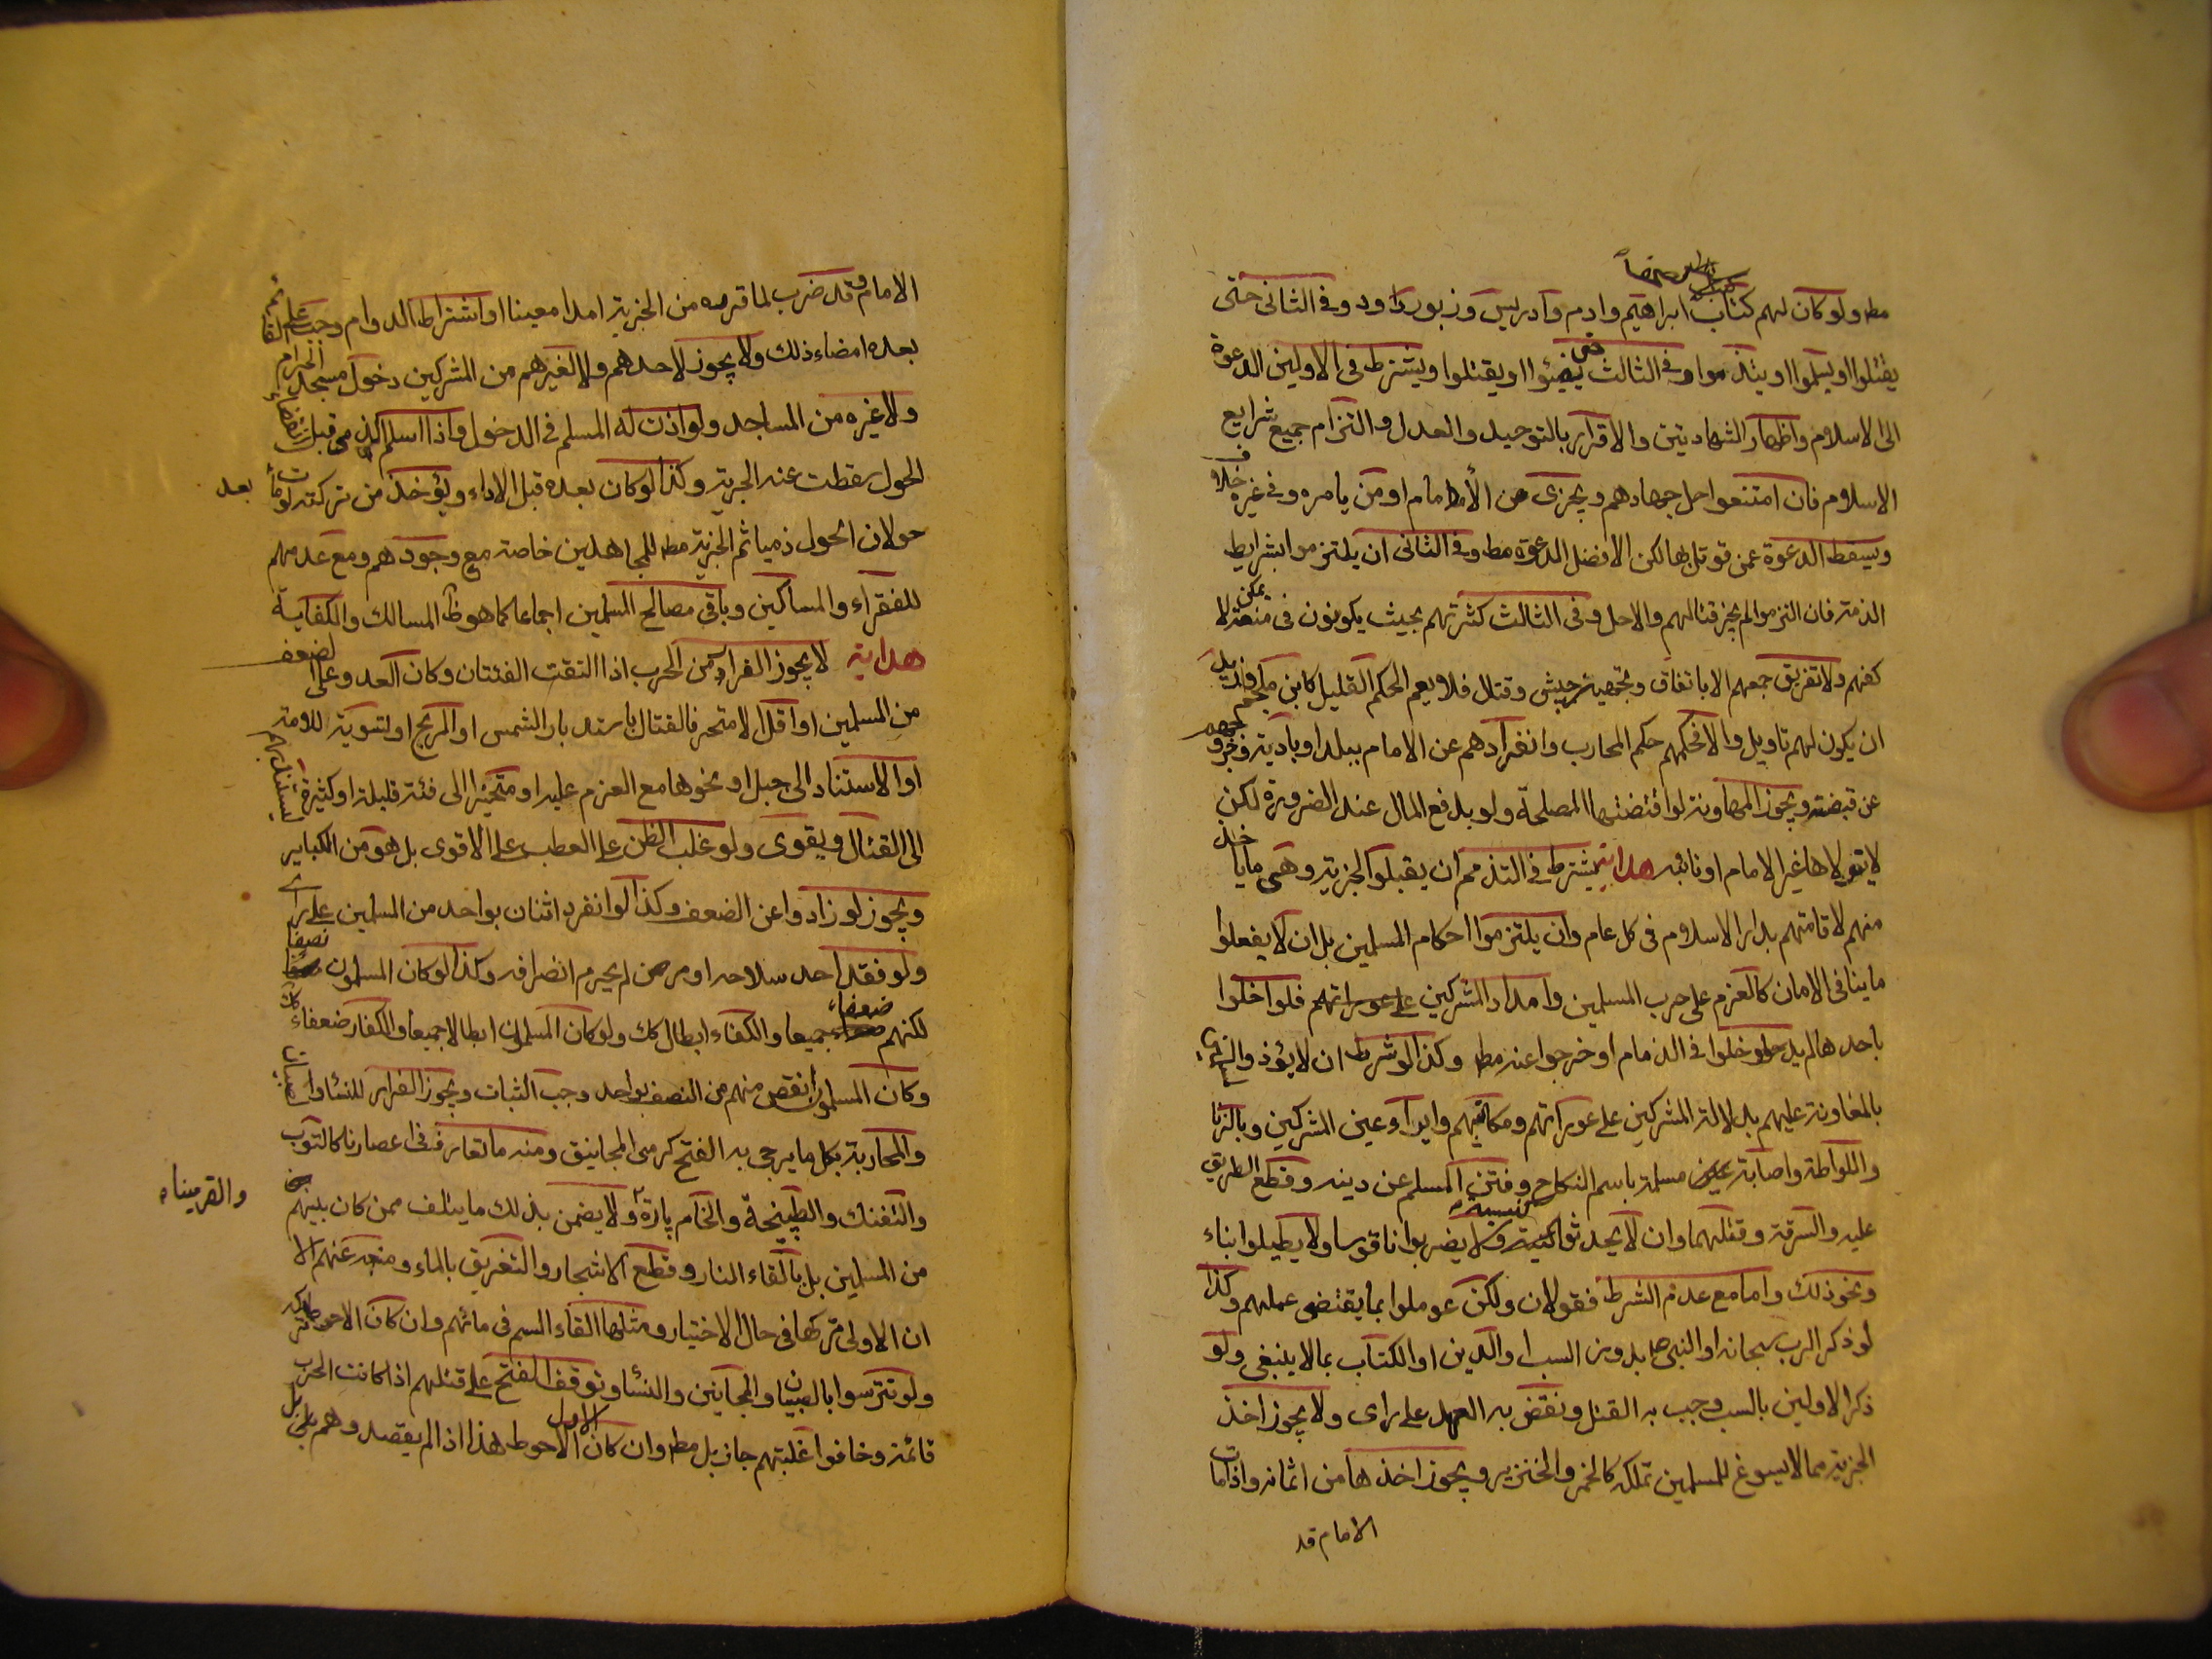 مط ولو كان لهم كتاب ابراهيم وادم وادريس وزبور داود وفي الثاني حتى
يقتلوا او يسلموا او يتذمموا وفي الثالث حتى يفيئوا او يقتلوا ويشترط في الاولين الدعوة
الى الاسلام واظهار الشهادتين والاقرار بالتوحيد والعدل والتزام جميع شرايع
الاسلام فان امتنعوا حل جهادهم ويجزى من الامام او من يامره وفي غيره خلاف
ويسقط الدعوة عمن قوتل بها لكن الافضل الدعوة مط وفي الثاني ان يلتزموا بشرايط
الذمة فان التزموا لم يجز قتالهم والا حل وفي الثالث كثرتهم بحيث يكونون في منعة لا يمكن
كفهم ولا تفريق جمعهم الا باتفاق وتجهيز جيش وقتال فلا يعم الحكم القليل كابن ملجم وازيد
ان يكون لهم تاويل والا فحكمهم حكم المحارب وانفرادهم عن الامام ببلد او بادية وخروجهم
عن قبضته ويجوز المهادنة لو اقتضتها المصلحة ولو بدفع المال عند الضرورة لكن
لا يتولاها غير الامام او نائبه هداية يشترط في التذمم ان يقبلوا الجزية وهي ما ياخذ
منهم لاقامتهم بدار الاسلام في كل عام وان يلتزموا احكام المسلمين بل ان لا يفعلوا
ما ينافى الامان كالعزم على حرب المسلمين وامداد المشركين على عوراتهم فلو اخلوا
باحدهما لم يدخلوا في الذمام او خرجوا عنه مط وكذا لو شرط ان لا يؤذوا
بالمعاونة عليهم بدلالة المشركين على عوراتهم ومكاتبتهم وايواء عين المشركين وبالزنا
واللواطة واصابة مسلمة باسم النكاح وفتن المسلم عن دينه وقطع الطريق
عليه والسرقة وقتلهما وان لا يحدثوا كنيسة ولا يضربوا ناقوسا ولا يطيلوا بناء
ونحو ذلك واما مع عدم الشرط فقولان ولكن عوملوا بما يقتضى عملهم وكذا
لو ذكر الرب سبحانه او النبي ص بدون السب او الدين او الكتاب بما لا ينبغى ولو
ذكر الاولين بالسب وجب به القتل ونقض به العهد على راى ولا يجوز اخذ
الجزية مما لا يسوغ للمسلمين تملكه كالخمر والخنزير ويجوز اخذها من اثمانه واذا مات
الامام قد
الامام وقد ضرب لما قرره من الجزية امدا معينا او اشترط الدوام وجب على القائم
بعده امضاء ذلك ولا يجوز لاحدهم ولا لغيرهم من المشركين دخول مسجد الحرام
ولا غيره من المساجد ولو اذن له المسلم في الدخول واذا اسلم الذمى قبل انقضاء
الحول سقطت عنه الجزية وكذا لو كان بعده قبل الاداء ويؤخذ من تركته لو مات بعد
حولان الحول ذميا ثم الجزية مط للمجاهدين خاصة مع وجودهم ومع عدمهم
للفقراء والمساكين وباقى مصالح المسلمين اجماعا كما هو ظ المسالك والكفاية
هداية لا يجوز الفرار من الحرب اذا التقت الفئتان وكان العدو على الضعف
من المسلمين او اقل الا متحرفا لقتال باستدبار الشمس او الريح او لتسوية للامة
او الاستناد الى جبل او نحوها مع العزم عليه او متحيزا الى فئة قليلة او كثيرة يستنجد بهم
الى القتال ويقوى ولو غلب الظن على العطب على الاقوى بل هو من الكباير
ويجوز لو زادوا عن الضعف وكذا لو انفرد اثنان بواحد من المسلمين على راى
ولو فقد احد سلاحه او مرض لم يحرم انصرافه وكذا لو كان المسلمون نصفا
لكنهم ضعفاء جميعا والكفار ابطال كك ولو كان المسلمون ابطالا جميعا والكفار ضعفاء كك
وكان المسلمون انقص منهم من النصف بواحد وجب الثبات ويجوز الفرار للنساء
والمحاربة بكل ما يرجى به الفتح كرمى المجانيق ومنه ما تعارف في اعصارنا كالتوب
والتفنك والطپنچة والخام پارة والقرمیناه ولا يضمن بذلك ما يتلف ممن كان بينهم
من المسلمين بل بالقاء النار وقطع الاشجار والتغريق بالماء ومنعه عنهم الا
ان الاولى تركها في حال الاختيار ومثلها القاء السم في مائهم وان كان الاحوط تركه
ولو تترسوا بالصبيان والمجانين والنساء وتوقف الفتح على قتلهم اذا كانت الحرب
قائمة وخافوا غلبتهم جاز بل مط وان كان الاحوط الاول هذا اذا لم يقصدوهم بل